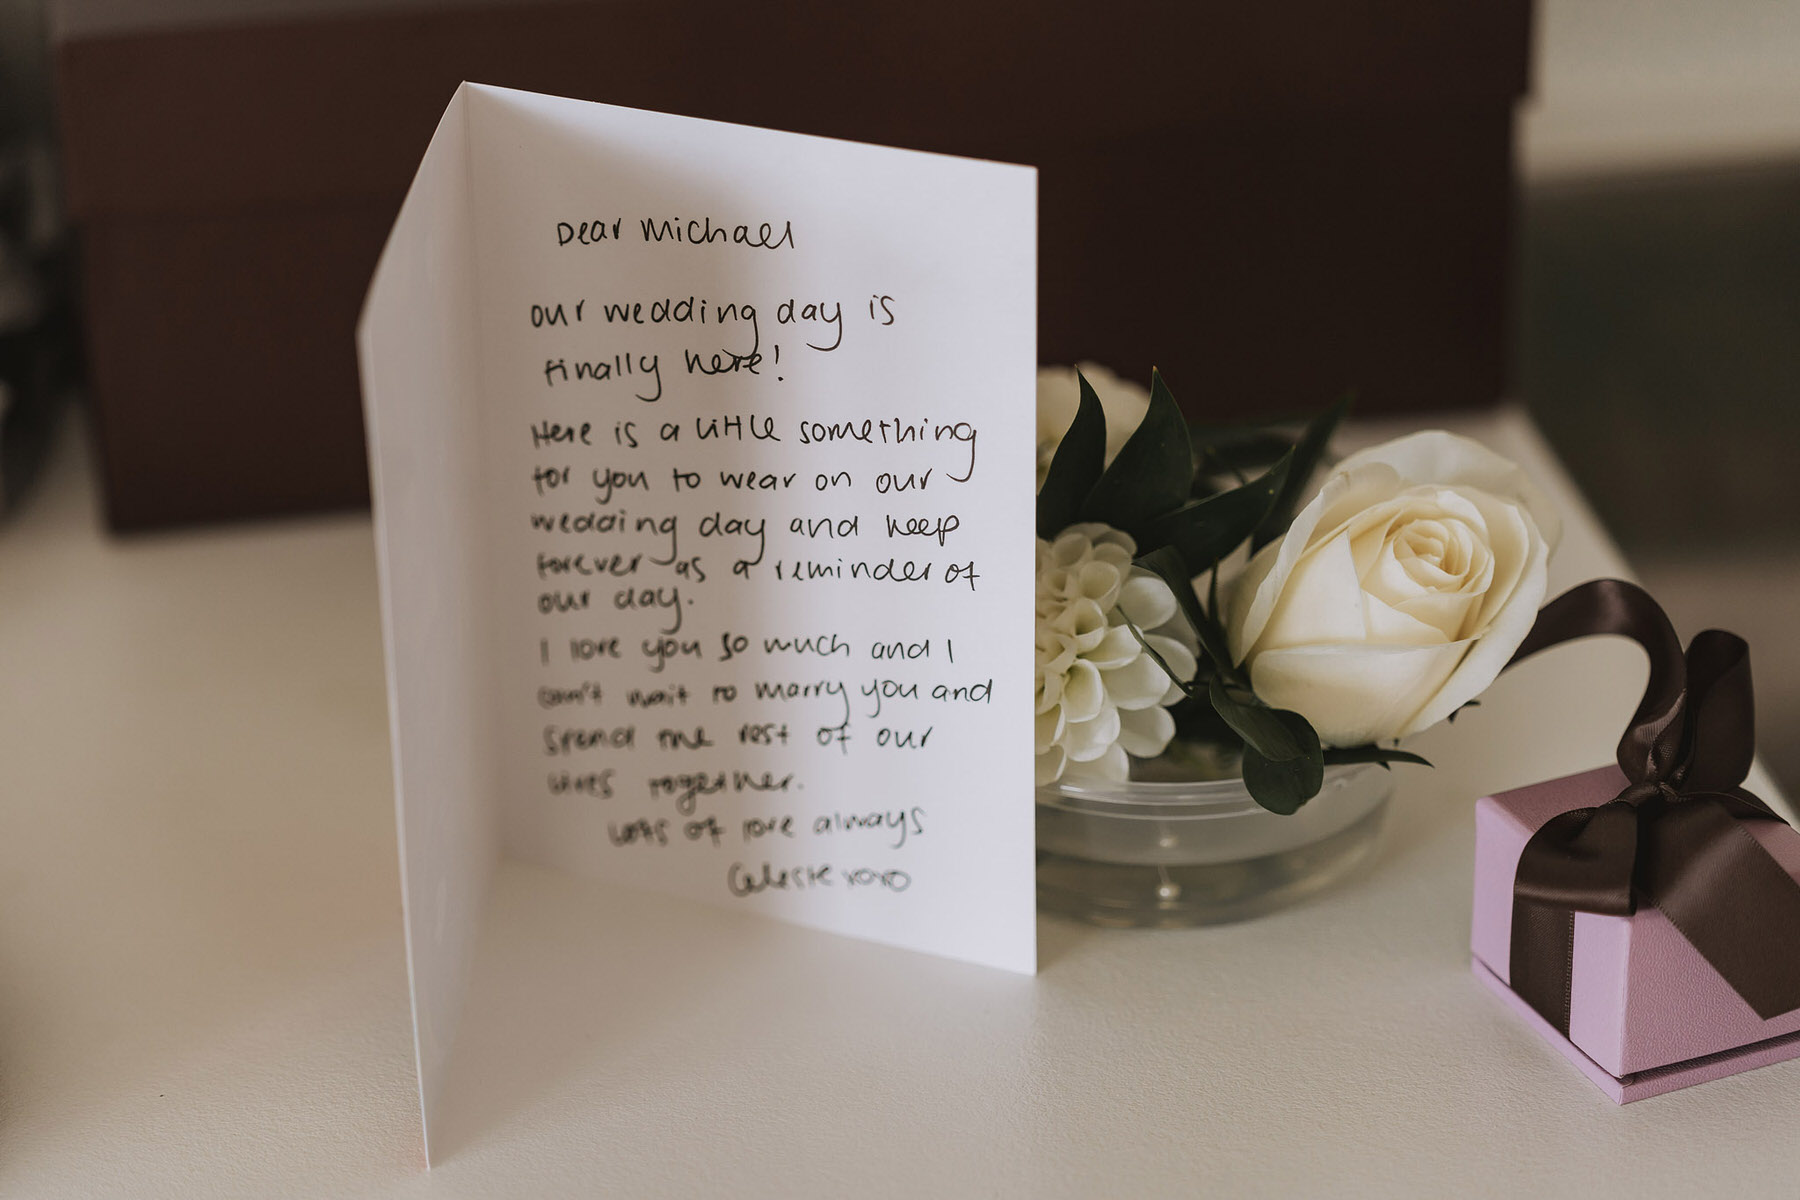 Dear Michael
our wedding day is
finally here!
Here is a little something
for you to wear on our
wedding day and keep
forever as a reminder of
our day.
I love you so much and I
can't wait to marry you and
spend the rest of our
lives together.
Lots of love always
Celeste xoxo